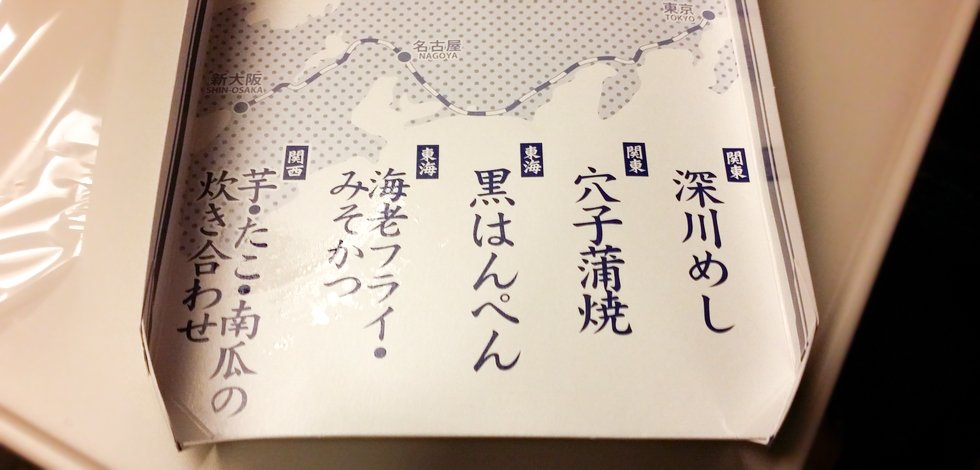 東京
TOKYO
名古屋
NAGOYA
新大阪
SHIN-OSAKA
関東
深川めし
関東
穴子蒲焼
東海
黒はんぺん
東海
海老フライ・
みそかつ
関西
芋・たこ・南瓜の
炊き合わせ